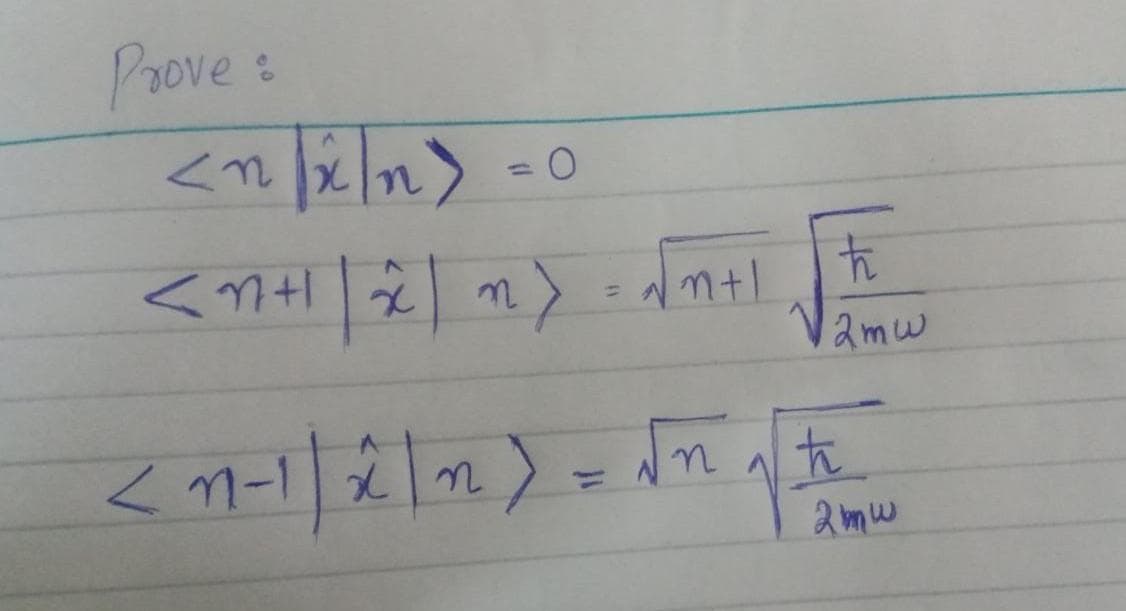 Prove :
<n|x̂|n> = 0
<n+1|x̂|n> = √n+1 √ħ/2mω
<n-1|x̂|n> = √n √ħ/2mω